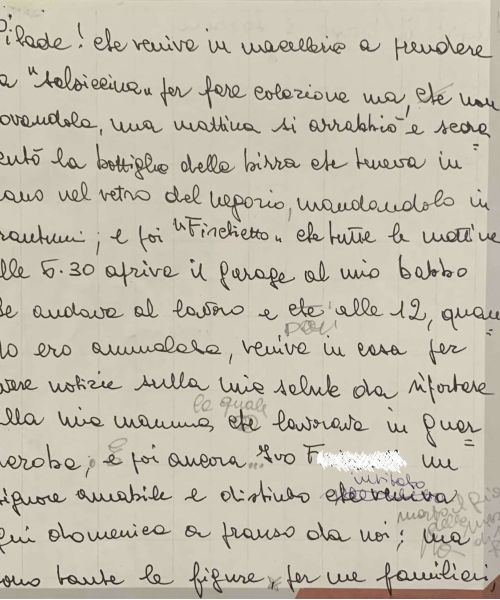 Pilade! che veniva in macelleria a prendere
a "salsiccina" per fare colazione ma, che non
ovandola, una mattina si arrabbiò e scara=
entò la bottiglia della birra che teneva in
ano nel vetro del negozio, mandandolo in
rantumi; e poi "Fischietto" che tutte le mattine
lle 5.30 apriva il garage al mio babbo
he andava al lavoro e che alle 12, quan=
poi
do ero ammalata, veniva in casa per
vere notizie sulla mia salute da riportare
la quale
lla mia mamma, che lavorava in guar=
daroba; e poi ancora... Ivo F un
signore amabile e distinto che veniva
invitato
gni domenica a pranzo da noi; ma
sono tante le figure, per me familiari,